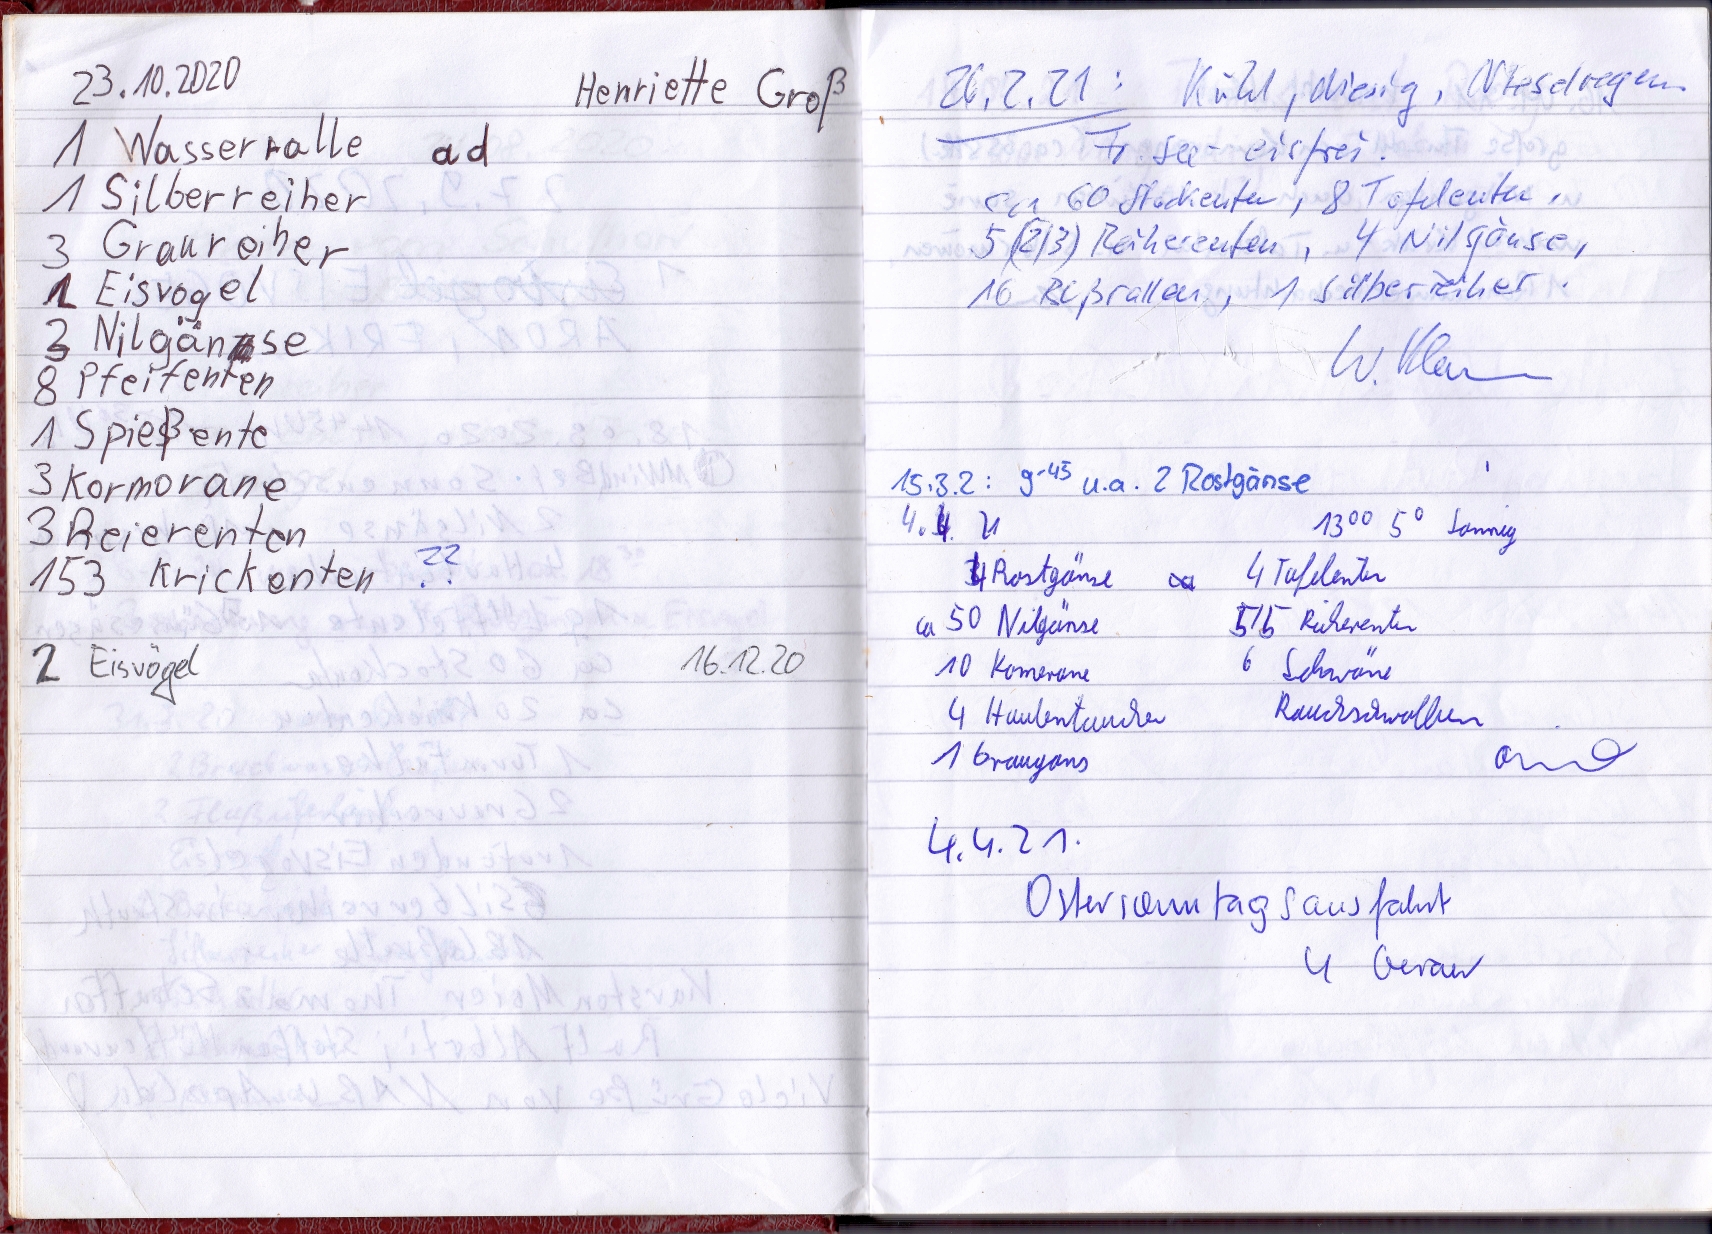 23.10.2020 Henriette Groß
1 Wasserralle ad
1 Silberreiher
3 Graureiher
1 Eisvogel
3 Nilgänse
8 Pfeifenten
1 Spießente
3 Kormorane
3 Reierenten
153 Krickenten ??
2 Eisvögel 16.12.20
26.2.21: Kühl, diesig, Nieselregen
Fr. see eisfrei.
ca 60 Stockenten, 8 Tafelenten,
5 (2/3) Reiherenten, 4 Nilgänse,
16 Bläßrallen, 1 Silberreiher.
W. Kl
15.3.2: 9-45 u.a. 2 Rostgänse
4.4. 21 13°° 5° Sonnig
4 Rostgänse 4 Tafelenten
ca 50 Nilgänse 5/5 Reiherenten
10 Komorane 6 Schwäne
4 Haubentaucher Rauchschwalben
1 Graugans
4.4.21.
Ostersonntagsausfahrt
4 Geraer